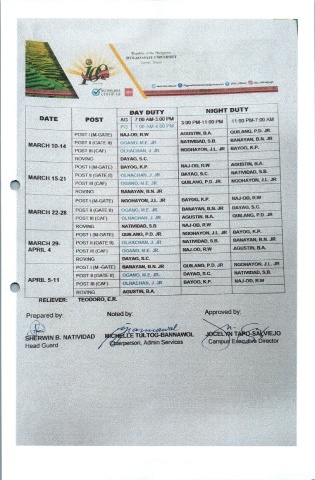 Republic of the Philippines
IFUGAO STATE UNIVERSITY
100
DATE POST DAY DUTY NIGHT DUTY
AG 7:00 AM-3:00 PM 3:00 PM-11:00 PM 11:00 PM-7:00 AM
PG 7:00 AM-4:00 PM
MARCH 10-14
POST I (M-GATE) NAJ-OD, R.W AGUSTIN, B.A. QUILANG, P.D. JR.
POST II (GATE II) OGANO, M.E. JR NATIVIDAD, S.B. BANAYAN, B.N. JR
POST III (CAF) OLHACHAN, J. JR NGOHAYON, J.L. JR BAYOG, K.P.
ROVING DAYAG, S.C.
MARCH 15-21
POST I (M-GATE) BAYOG, K.P. NAJ-OD, R.W AGUSTIN, B.A.
POST II (GATE II) OGANO, M.E. JR DAYAG, S.C. NATIVIDAD, S.B
POST III (CAF) OLHACHAN, J. JR QUILANG, P.D. JR NGOHAYON, J.L. JR
ROVING BANAYAN, B.N. JR
MARCH 22-28
POST I (M-GATE) NGOHAYON, J.L. JR BAYOG, K.P. QUILANG, P.D. JR
POST II (GATE II) OGANO, M.E. JR BANAYAN, B.N. JR DAYAG, S.C.
POST III (CAF) OLHACHAN, J. JR AGUSTIN, B.A. NAJ-OD, R.W
ROVING NATIVIDAD, S.B
MARCH 29-APRIL 4
POST I (M-GATE) QUILANG, P.D. JR NGOHAYON, J.L. JR BAYOG, K.P.
POST II (GATE II) OLHACHAN, J. JR NATIVIDAD, S.B. BANAYAN, B.N. JR
POST III (CAF) OGANO, M.E. JR NAJ-OD, R.W AGUSTIN, B.A.
ROVING DAYAG, S.C.
APRIL 5-11
POST I (M-GATE) BANAYAN, B.N. JR QUILANG, P.D. JR NATIVIDAD, S.B
POST II (GATE II) OGANO, M.E. JR DAYAG, S.C. NGOHAYON, J.L. JR
POST III (CAF) OLHACHAN, J. JR BAYOG, K.P. NAJ-OD, R.W
ROVING AGUSTIN, B.A.
RELIEVER: TEODORO, E.R.
Prepared by: Noted by: Approved by:
SHERWIN B. NATIVIDAD MICHELLE TULTOG-BANNAWOL JOCELYN TAPO-SALVIEJO
Head Guard Chairperson, Admin Services Campus Executive Director